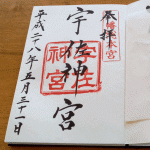 奉拝
八幡総本宮
宇佐神宮
宇佐神宮
平成二十八年五月三十一日